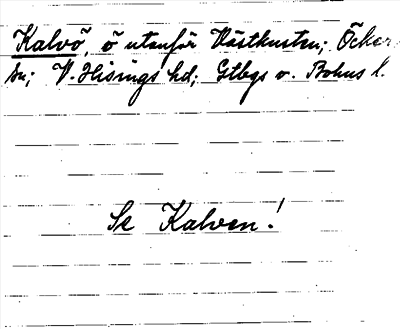 Kalvö, ö utanför Västkusten; Öcker
sn; V. Hisings hd; Gtbgs o. Bohus l.
Se Kalven!